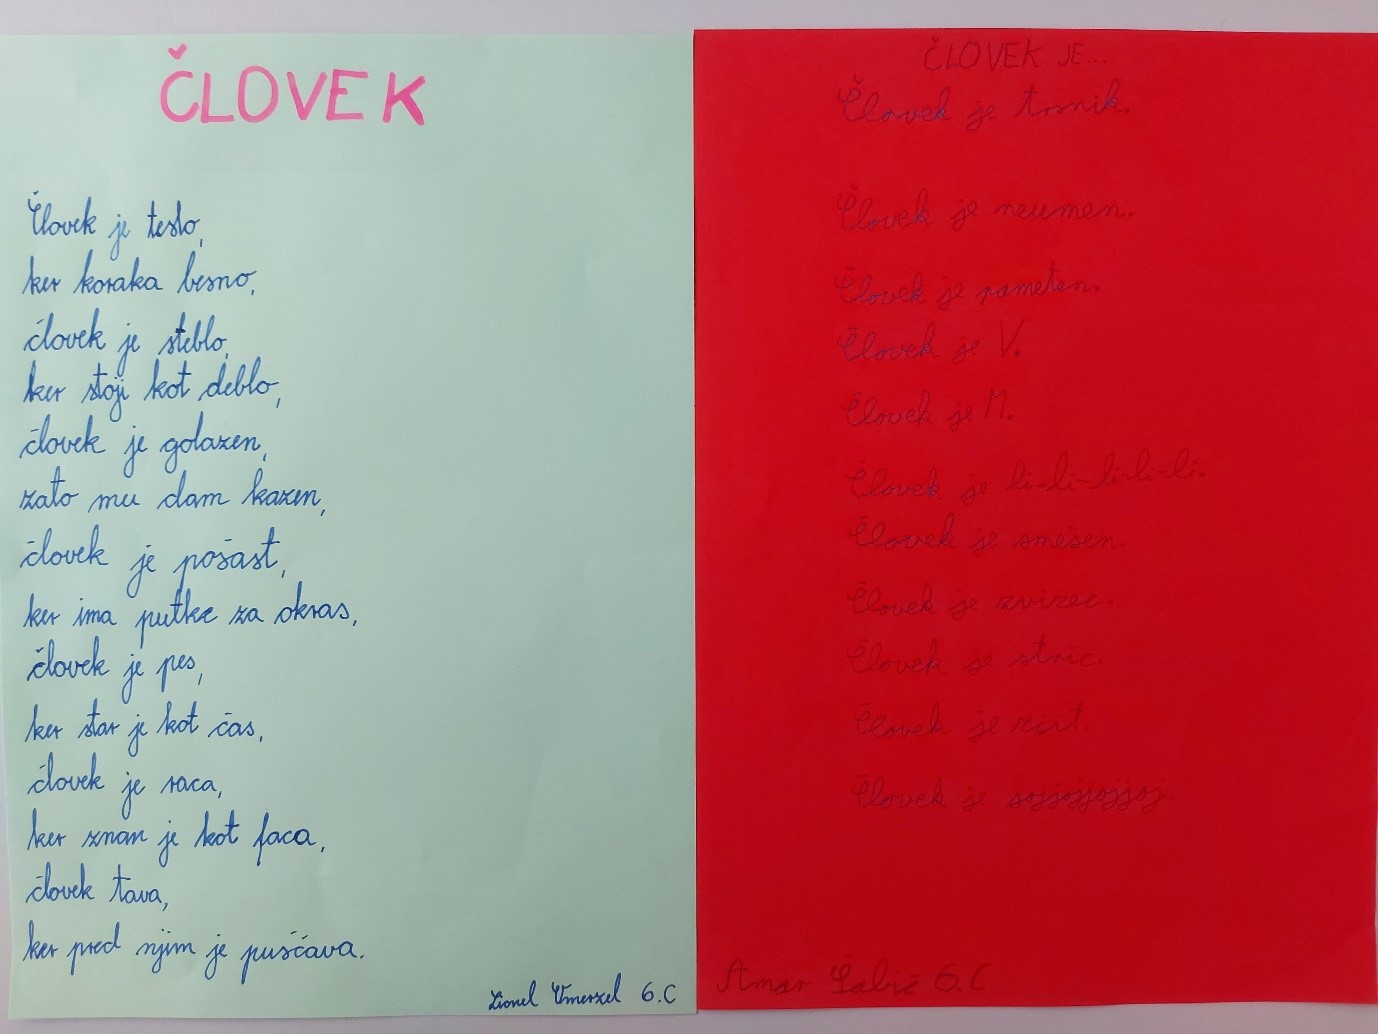 ČLOVEK
Človek je testo,
ker koraka besno,
človek je steblo,
ker stoji kot deblo,
človek je golazen,
zato mu dam kazen,
človek je pošast,
ker ima putke za okras,
človek je pes,
ker star je kot čas,
človek je raca,
ker znan je kot faca,
človek tava,
ker pred njim je puščava.
Lionel Vmerzel 6.C
ČLOVEK JE...
Človek je trsnik.
Človek je neumen.
Človek je pameten.
Človek je V.
Človek je M.
Človek je li-li-li-li-li.
Človek je smešen.
Človek je
Človek je stric.
Človek je
Človek je
Amar 6.C